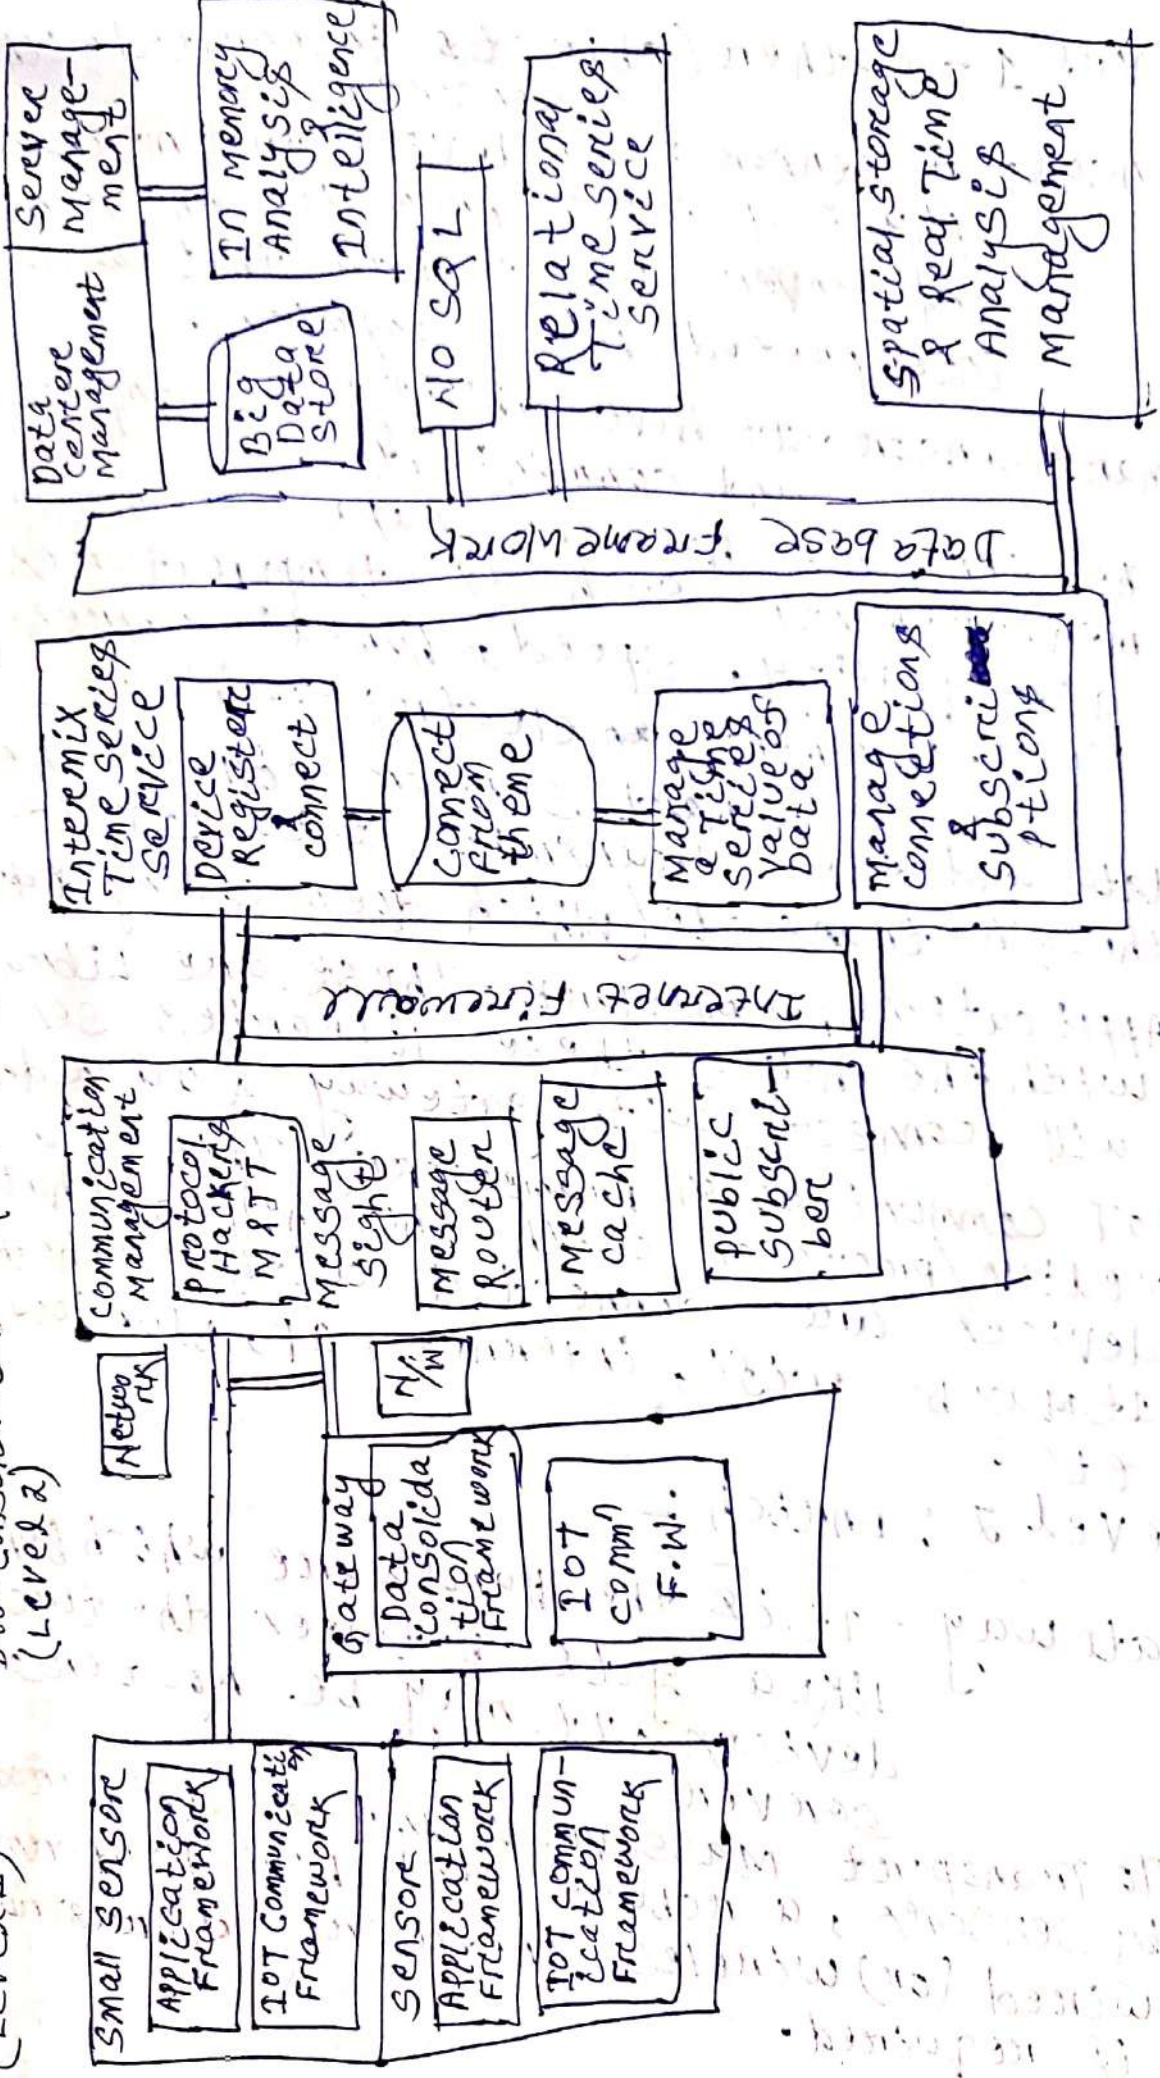 (Level 2)
Small Sensore
Application
Framework
IOT Communicati
on
Framework
Sensore
Application
Framework
IOT commun-
ication
Framework
Gateway
Data
Consolida
tion
Framework
IOT
Commn
F.W.
Netwo
rk
N/W
Communication
Management
Protocol
Hackers
MQTT
Message
Sight
Message
Router
Message
cache
Public
Subscri-
bere
Internet Firewall
Interemix
Time Series
Service
Device
Register
&
Connect
Connect
From
there
Manage
a Time
Series
Value of
Data
Manage
Connections
&
Subscri
ptions
Data base Framework
Data
Centere
Management
Server
Manage-
ment
Big
Data
Store
In memory
Analysis
&
Intelligence
NO SQL
Relational
Time Series
Service
Spatial storage
& Real Time
Analysis
Management